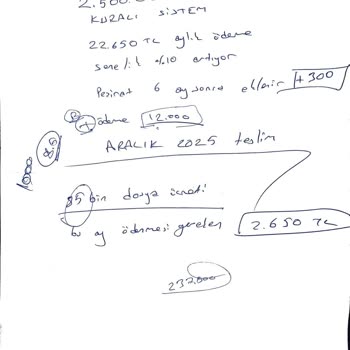 2.500.0
KURALI SİSTEM
22.650 TL aylık ödeme
senelik %10 artıyor
Peşinat 6 ay sonra eklenir +300
ödeme 12.000
ARALIK 2025 teslim
8.5
1000
35 bin dosya ücreti
bu ay ödenmesi gereken 2.650 TL
232.000